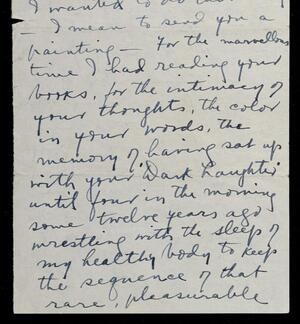 I wanted to do
— I mean to send you a
painting — For the marvellous
time I had reading your
books, for the intimacy of
your thoughts, the color
in your words, the
memory of having sat up
with your 'Dark Laughter'
until four in the morning
some twelve years ago
wrestling with the sleep of
my healthy body to keep
the sequence of that
rare, pleasurable